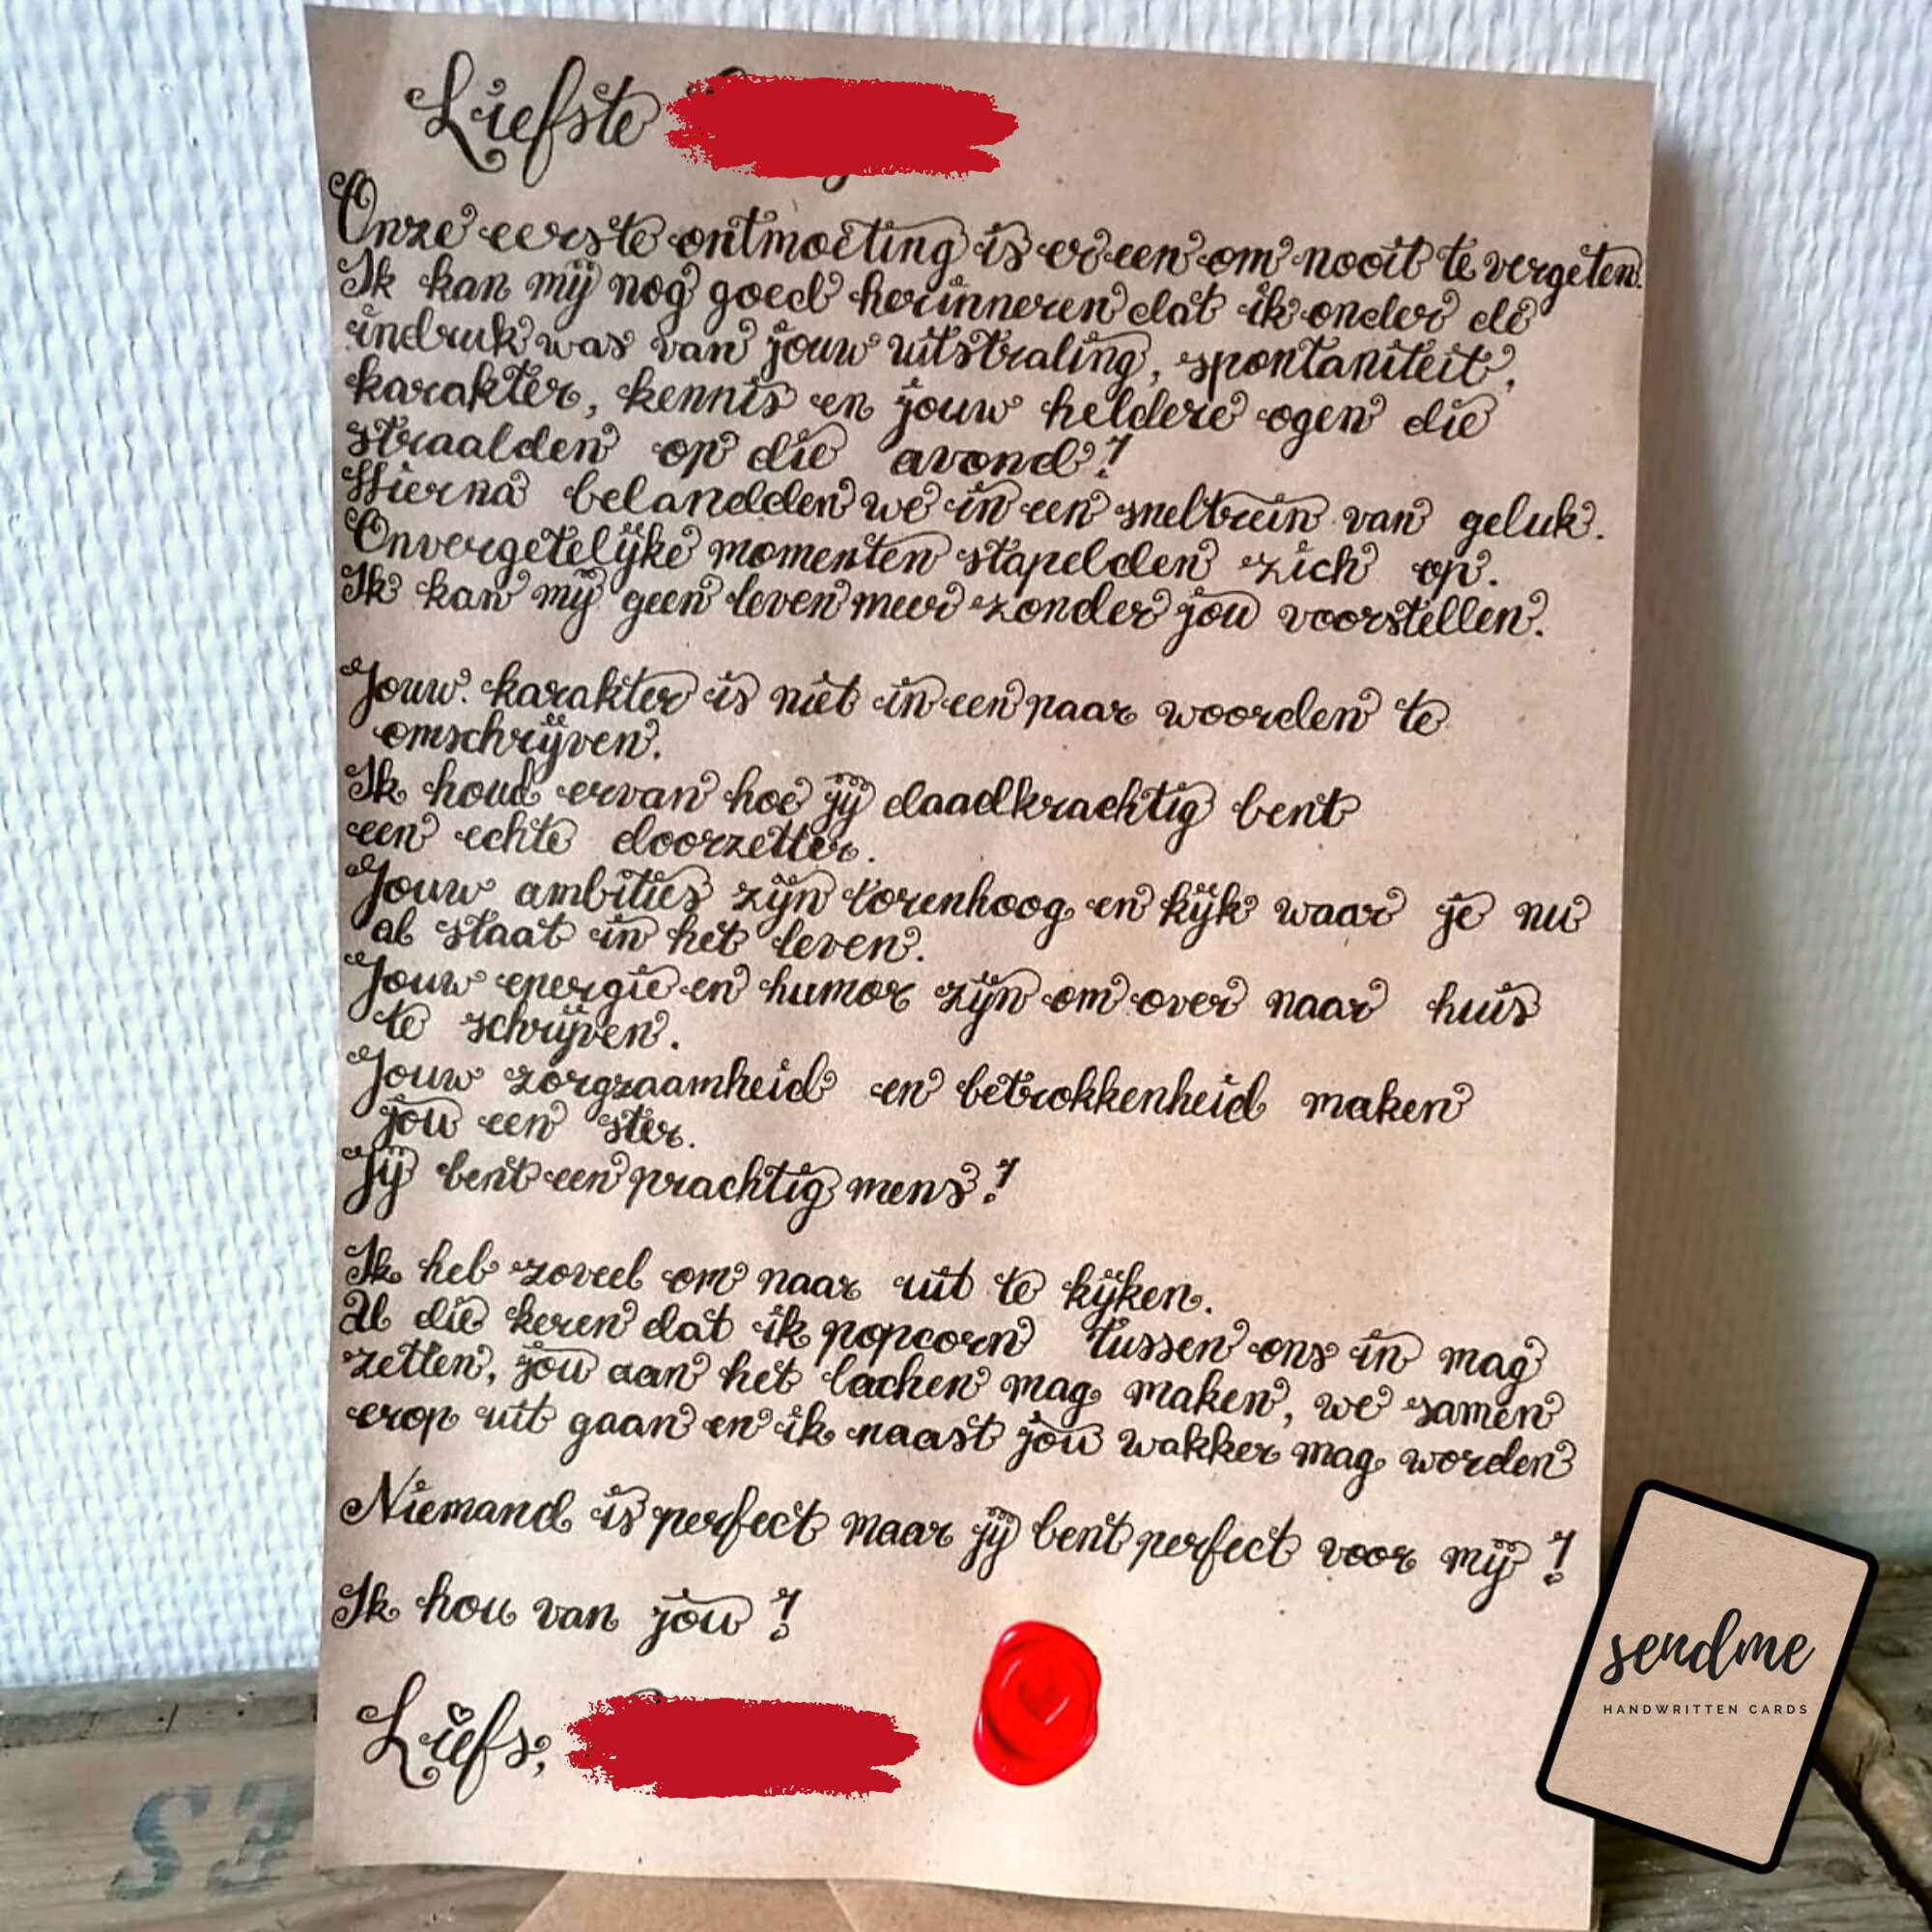 Liefste
Onze eerste ontmoeting is er een om nooit te vergeten.
Ik kan mij nog goed herinneren dat ik onder de
indruk was van jouw uitstraling, spontaniteit,
karakter, kennis en jouw heldere ogen die
straalden op die avond!
Hierna belandden we in een sneltrein van geluk.
Onvergetelijke momenten stapelden zich op.
Ik kan mij geen leven meer zonder jou voorstellen.
Jouw karakter is niet in een paar woorden te
omschrijven.
Ik houd ervan hoe jij daadkrachtig bent
een echte doorzetter.
Jouw ambities zijn torenhoog en kijk waar je nu
al staat in het leven.
Jouw energie en humor zijn om over naar huis
te schrijven.
Jouw zorgzaamheid en betrokkenheid maken
jou een ster.
Jij bent een prachtig mens!
Ik heb zoveel om naar uit te kijken.
Al die keren dat ik popcorn tussen ons in mag
zetten, jou aan het lachen mag maken, we samen
erop uit gaan en ik naast jou wakker mag worden
Niemand is perfect maar jij bent perfect voor mij!
Ik hou van jou!
Liefs,
sendme
HANDWRITTEN CARDS